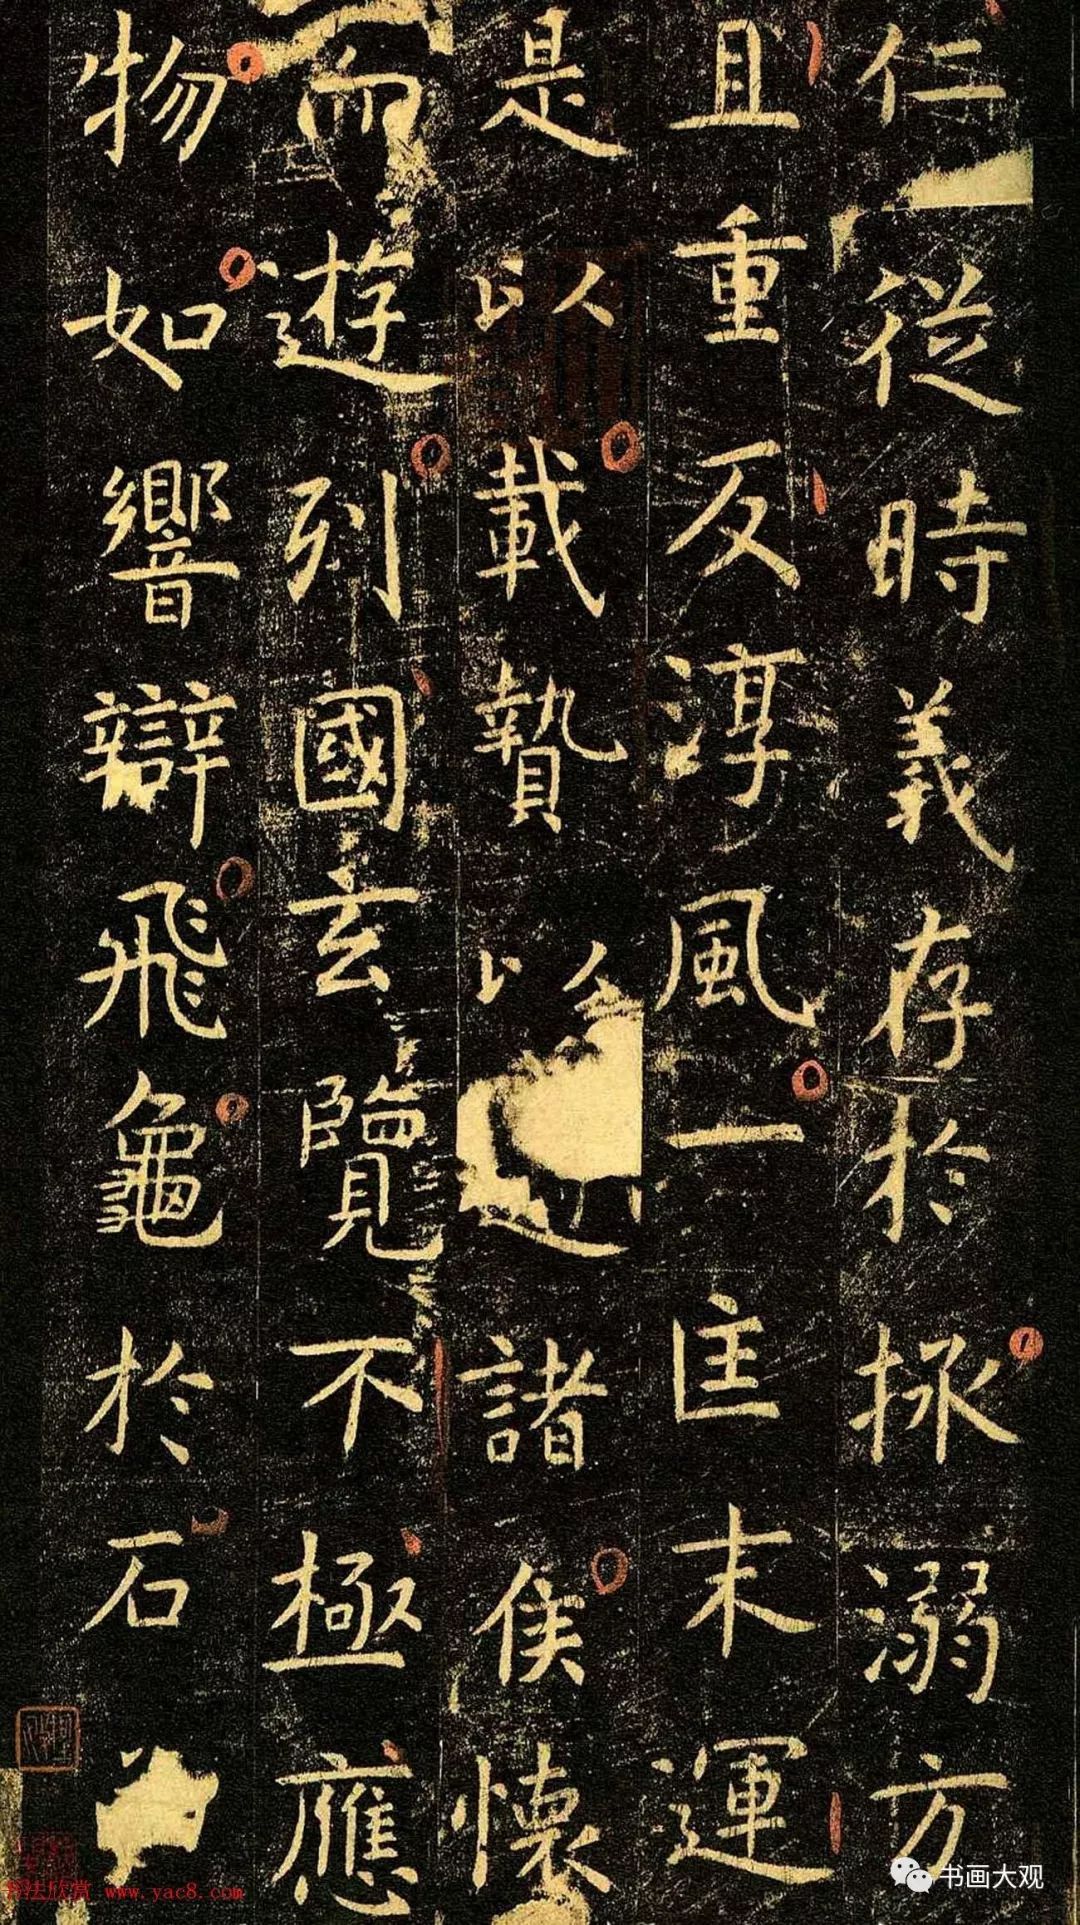 仁從時義存於拯溺方
且重反淳風一匡末運
是以載贄以 諸侯懷
而遊列國玄覽不極應
物如響辯飛龜於石
书画大观
书法欣赏 www.yac8.com